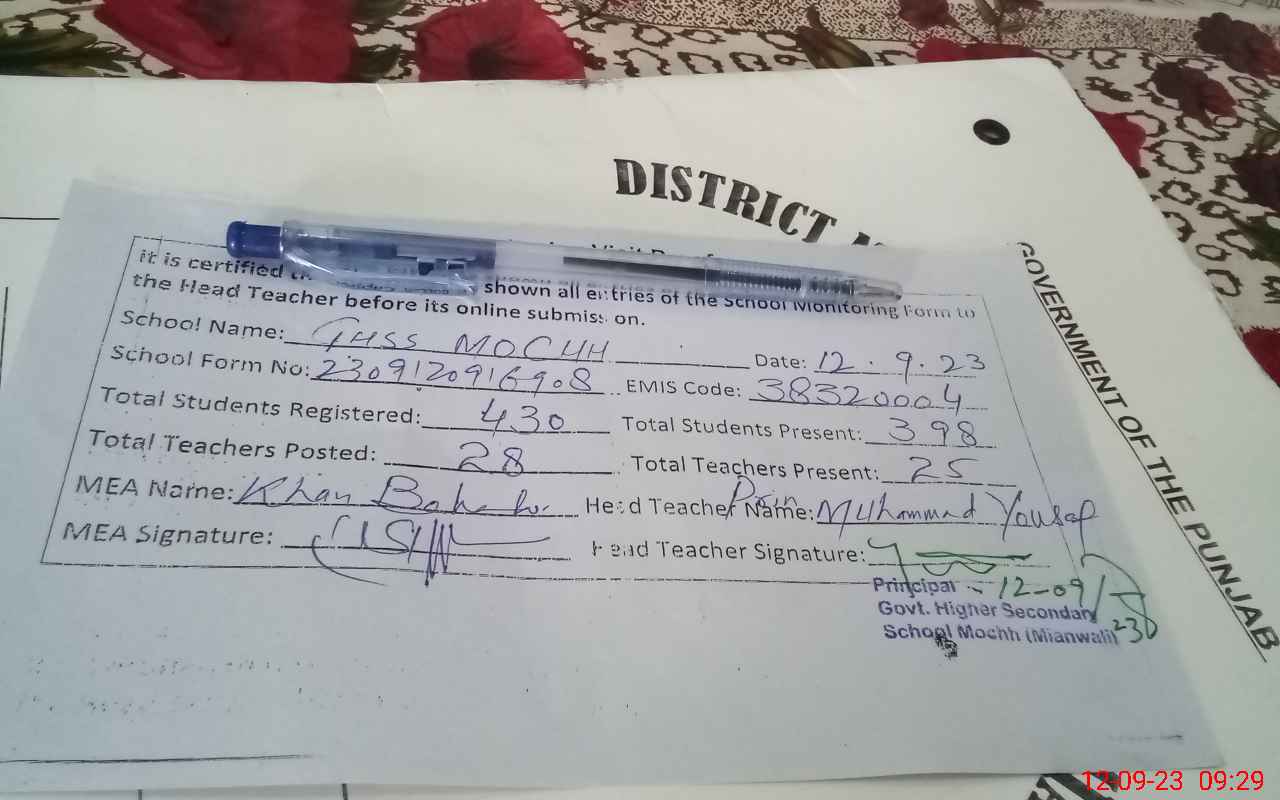 DISTRICT
GOVERNMENT OF THE PUNJAB
it is certified
shown all entries of the School Monitoring Form to
the Head Teacher before its online submission.
School Name: GHSS MOCHH Date: 12.9.23
School Form No: 2309120916908 EMIS Code: 38320004
Total Students Registered: 430 Total Students Present: 398
Total Teachers Posted: 28 Total Teachers Present: 25
MEA Name: Khan Head Teacher Name: Muhammad Yousaf
MEA Signature: Head Teacher Signature:
Principal 12-09/23
Govt. Higher Secondary
School Mochh (Mianwali)
12-09-23 09:29